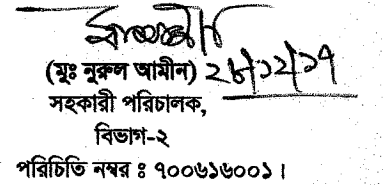 (মুঃ নুরুল আমীন) ২৮/১২/১৭
সহকারী পরিচালক,
বিভাগ-২
পরিচিতি নম্বর ঃ ৭০০৬১৬০০১।